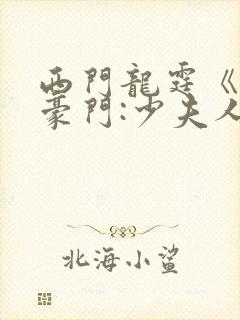 西門龍霆《
豪門:少夫人
北海小鯊